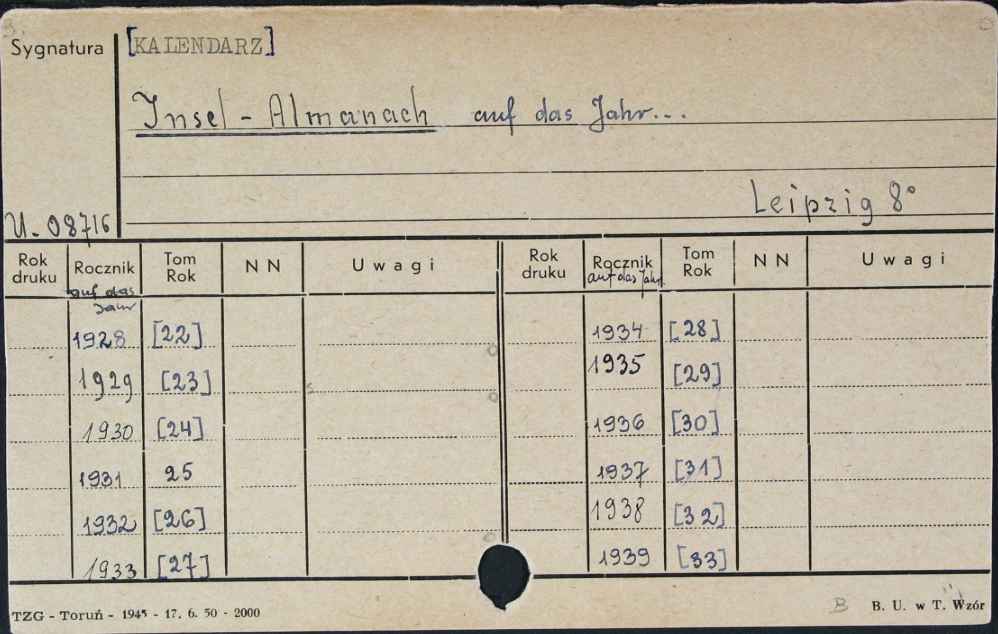 Sygnatura
[KALENDARZ]
Insel - Almanach auf das Jahr...
Leipzig 8°
U. 08716
Rok druku Rocznik auf das Jahr Tom Rok N N Uwagi Rok druku Rocznik auf das Jahr Tom Rok N N Uwagi
1928 [22] 1934 [28]
1929 [23] 1935 [29]
1930 [24] 1936 [30]
1931 25 1937 [31]
1932 [26] 1938 [32]
1933 [27] 1939 [33]
TZG - Toruń - 1945 - 17. 6. 50 - 2000 B B. U. w T. Wzór